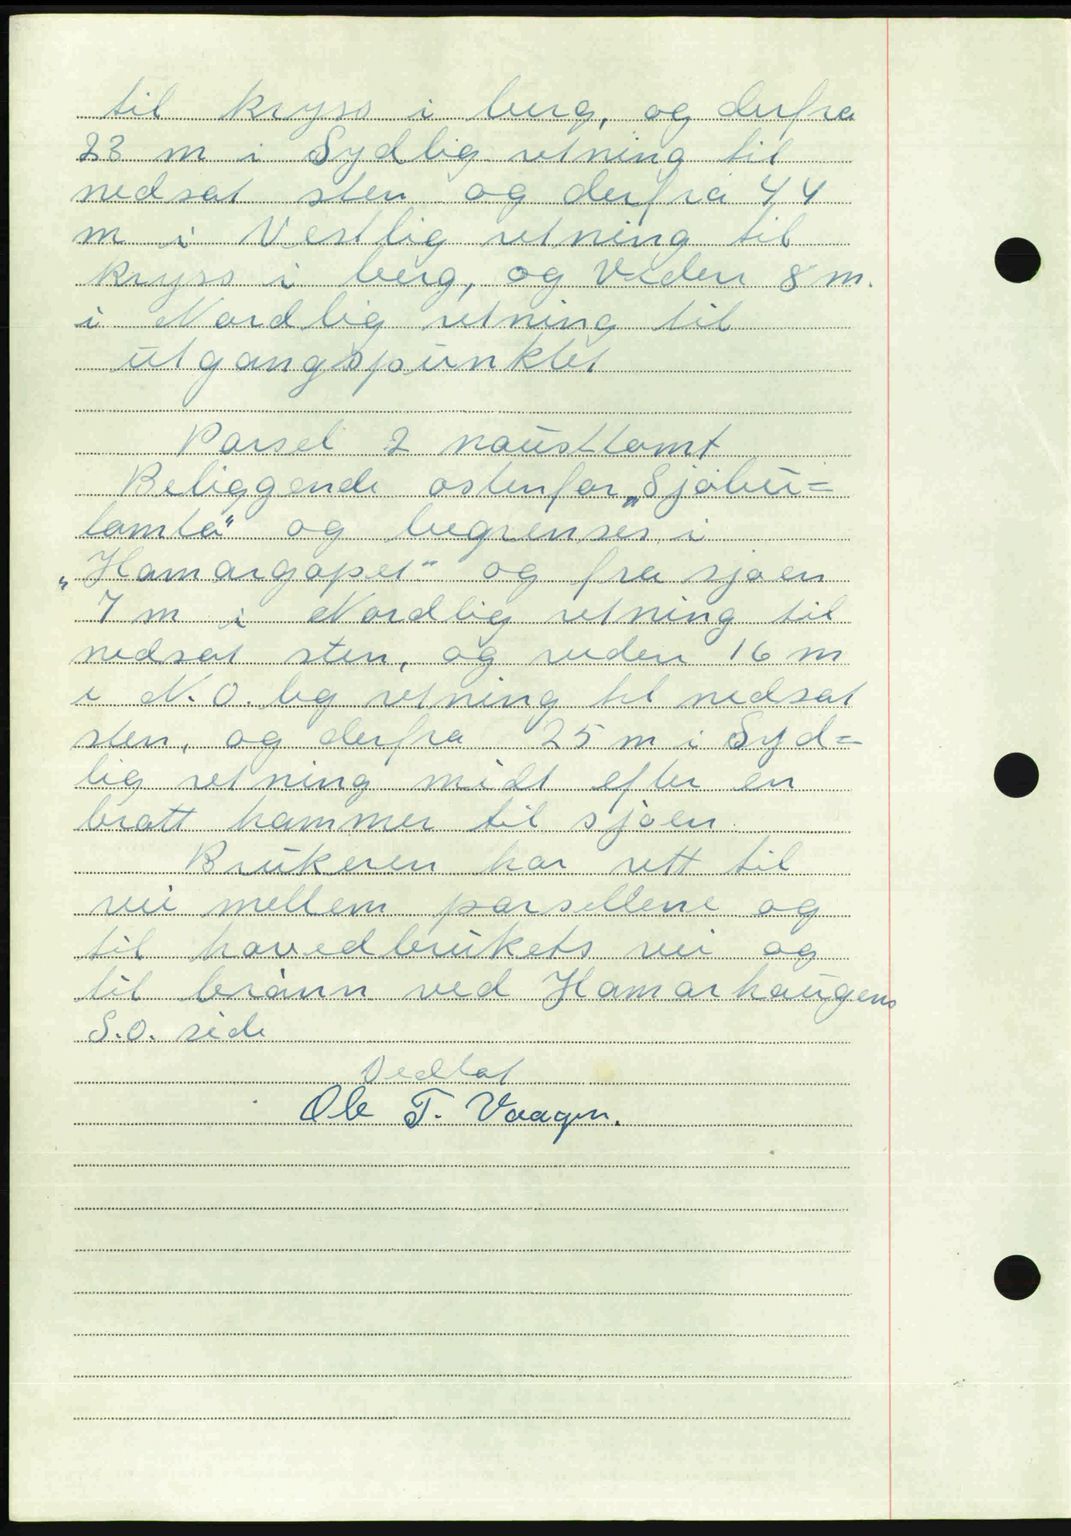 til kryss i berg, og derfra
23 m i Sydlig retning til
nedsat sten og derfra 44
m i Vestlig retning til
kryss i berg, og viden 8 m.
i Nordlig retning til
utgangspunktet
Parsel 2 nausttomt
Beliggende ostenfor „Sjøbu=
tomta" og begrenses i
„Hamargapet" og fra sjøen
7 m i Nordlig retning til
nedsat sten, og viden 16 m
i N.O. lig retning til nedsat
sten, og derfra 25 m i Syd=
lig retning midt efter en
bratt hammer til sjøen.
Brukeren har rett til
vei mellem parsellene og
til hovedbrukets vei og
til brønn ved Hamarhaugens
S.O. side
Vedtat
Ole T. Vaagen.